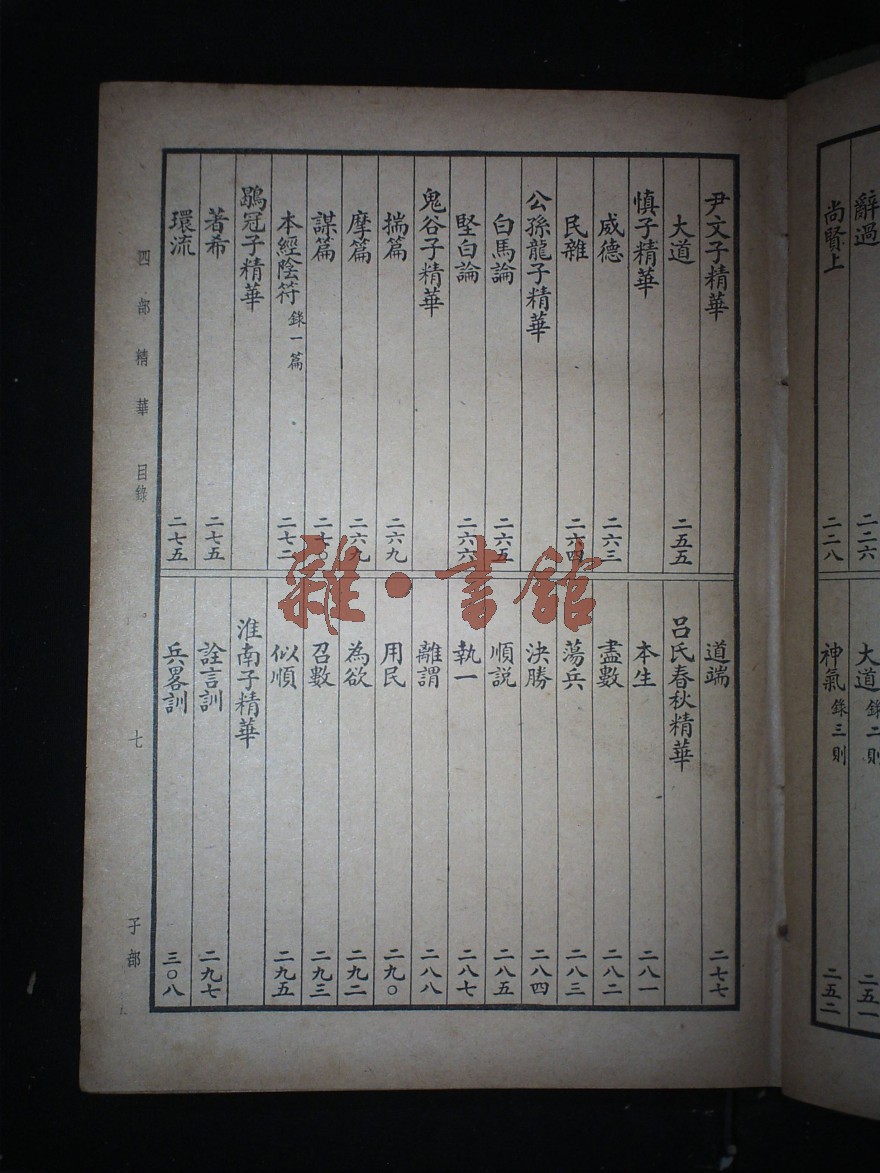 辭過 二二六
尚賢上 二二八
大道 錄二則 二五一
神氣 錄三則 二五二
尹文子精華
大道 二五五
慎子精華
威德 二六三
民雜 二六四
公孫龍子精華
白馬論 二六五
堅白論 二六六
鬼谷子精華
揣篇 二六九
摩篇 二六九
謀篇 二七〇
本經陰符 錄一篇 二七二
鶡冠子精華
著希 二七五
環流 二七五
道端 二七七
呂氏春秋精華
本生 二八一
盡數 二八二
蕩兵 二八三
決勝 二八四
順説 二八五
執一 二八七
離謂 二八八
用民 二九〇
為欲 二九二
召數 二九三
似順 二九五
淮南子精華
詮言訓 二九七
兵畧訓 三〇八
四部精華 目錄 七 子部
雜·書館